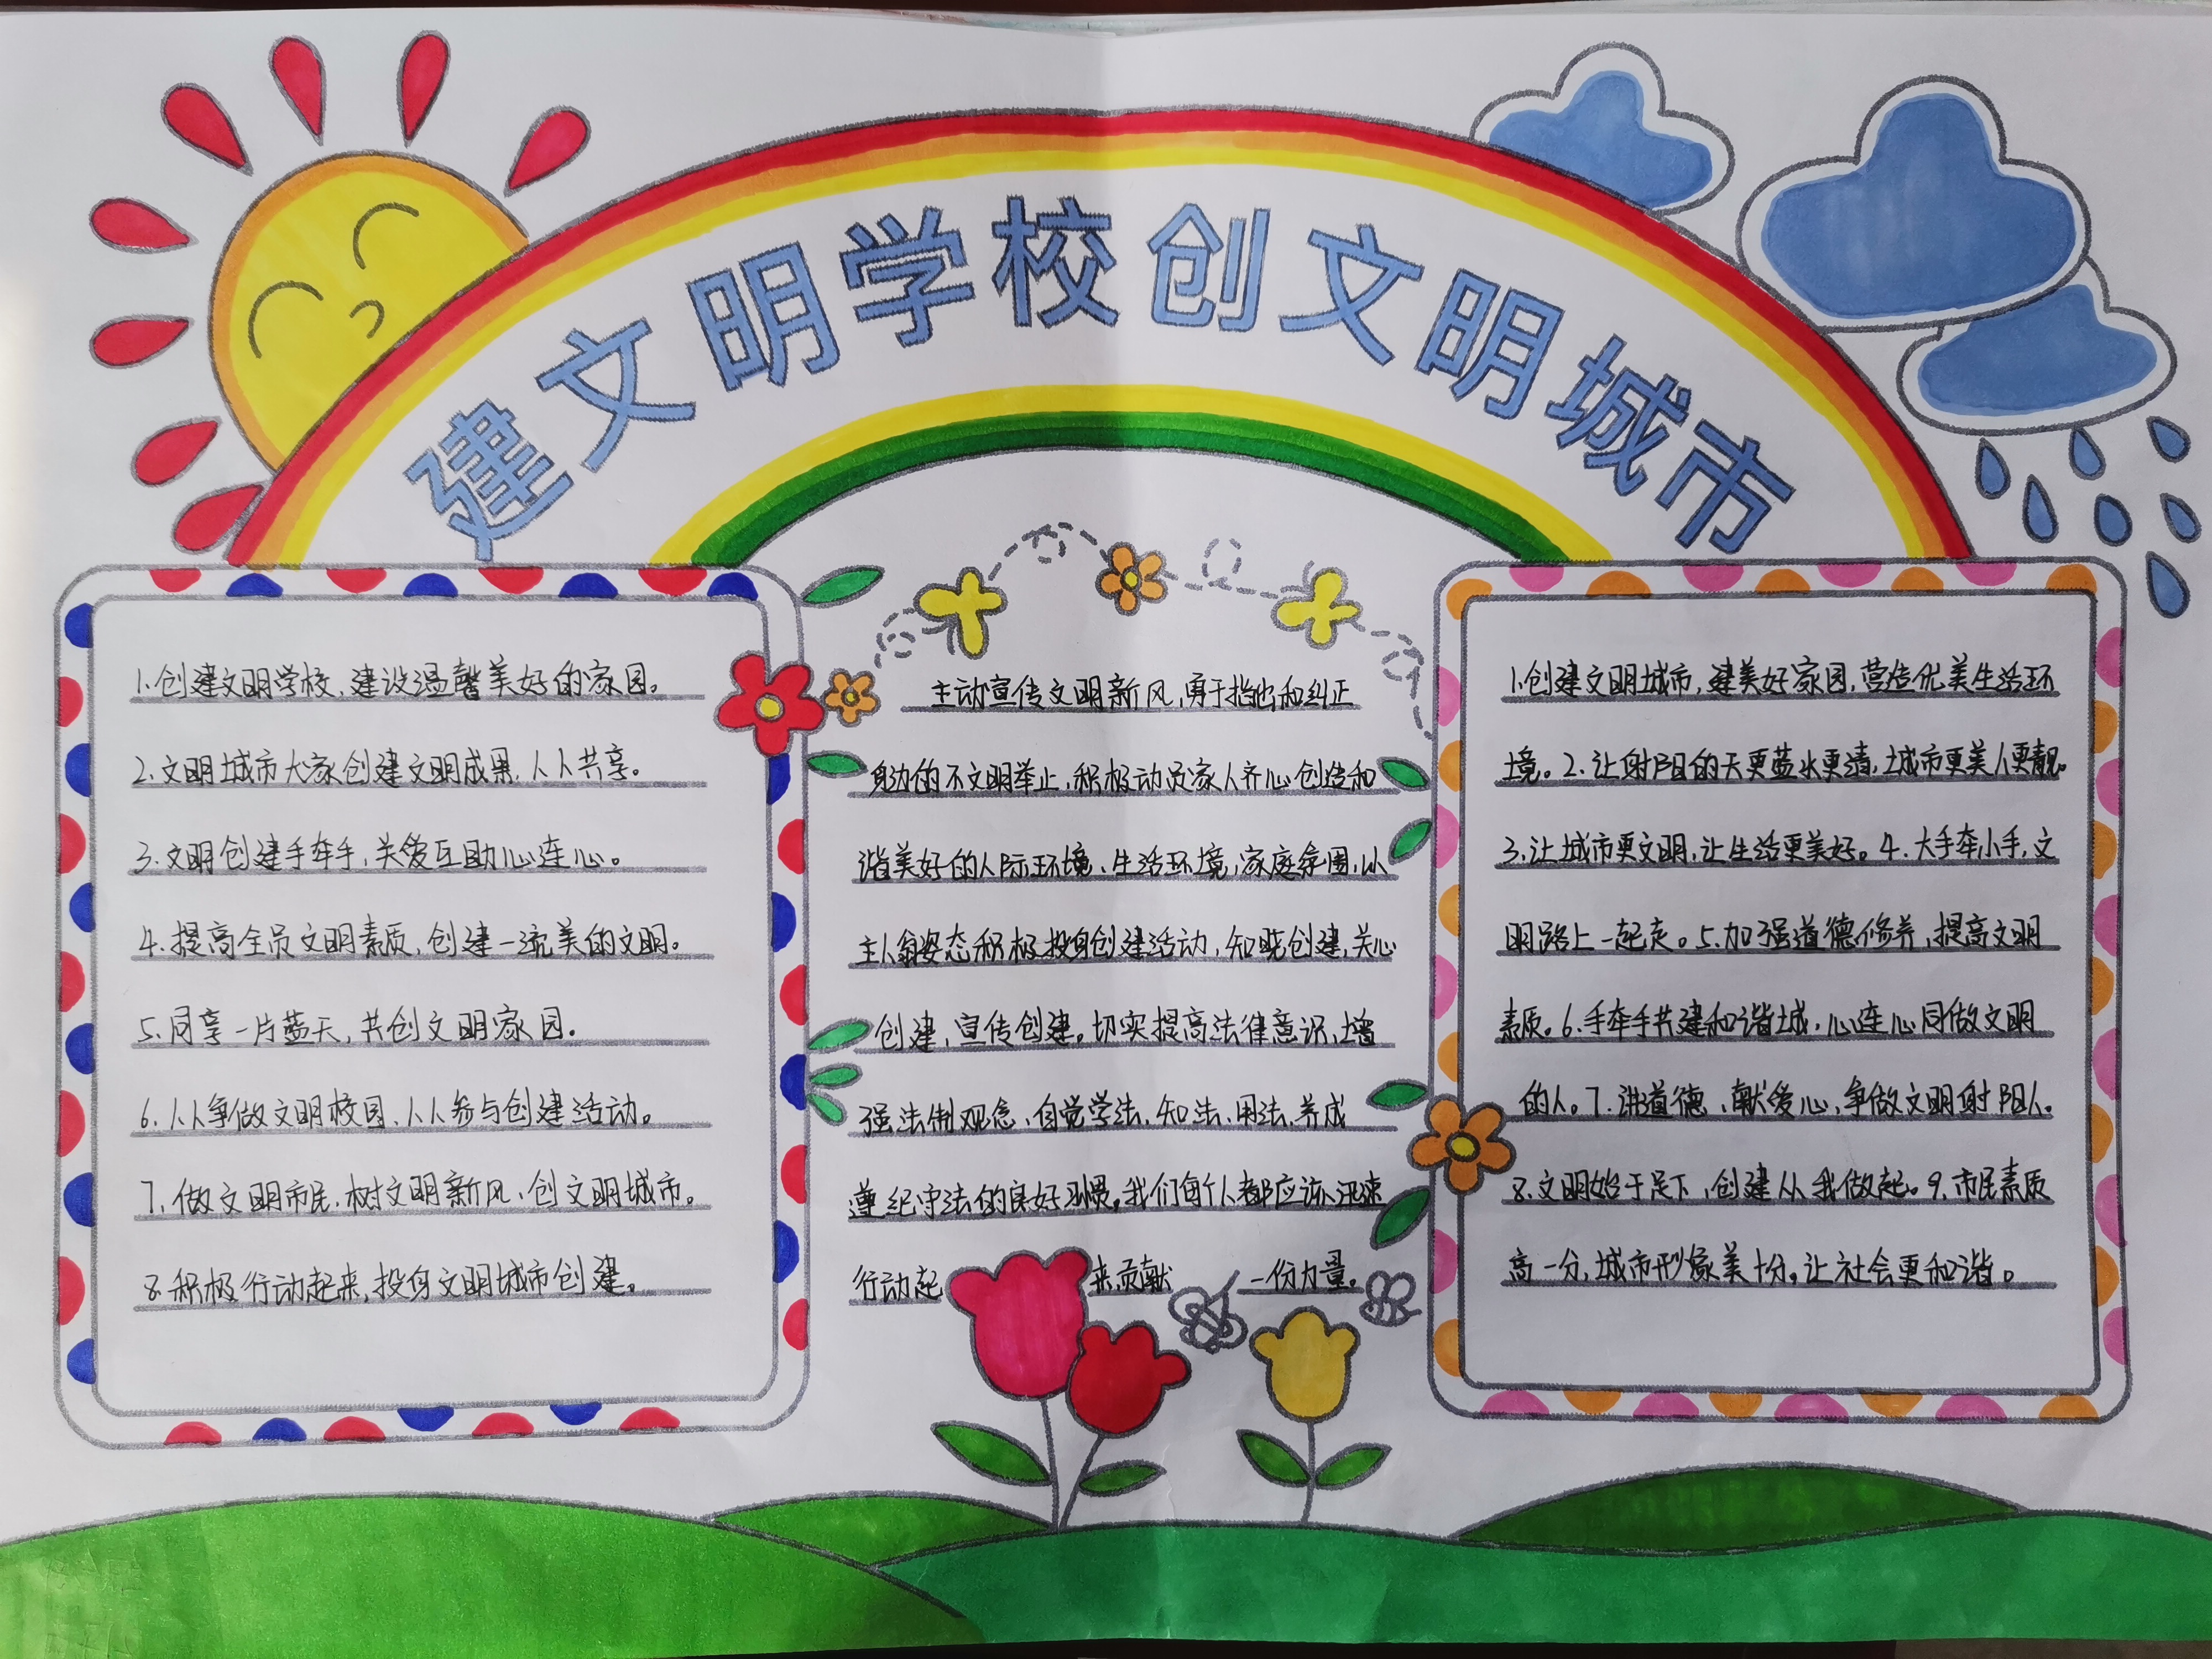 建文明学校创文明城市
1.创建文明学校、建设温馨美好的家园。
2.文明城市大家创建文明成果,人人共享。
3.文明创建手牵手,关爱互助心连心。
4.提高全员文明素质,创建一流美的文明。
5.同享一片蓝天,共创文明家园.
6.人人争做文明校园、人人参与创建活动。
7.做文明市民、树文明新风、创文明城市。
8.积极行动起来,投身文明城市创建。
主动宣传文明新风,勇于指出和纠正
身边的不文明举止,积极动员家人齐心创造和
谐美好的人际环境、生活环境,家庭氛围,以
主人翁姿态积极投身创建活动,知晓创建,关心
创建,宣传创建。切实提高法律意识,增
强法制观念、自觉学法、知法、用法、养成
遵纪守法的良好习惯。我们每个人都应该迅速
行动起来,贡献一份力量。
1.创建文明城市,建美好家园,营造优美生活环
境。2.让射阳的天更蓝水更清,城市更美人更靓。
3.让城市更文明,让生活更美好。4.大手牵小手,文
明路上一起走。5.加强道德修养,提高文明
素质。6.手牵手共建和谐城,心连心同做文明
的人。7.讲道德、献爱心,争做文明射阳人。
8.文明始于足下,创建从我做起。9.市民素质
高一分,城市形象美十分。让社会更和谐。